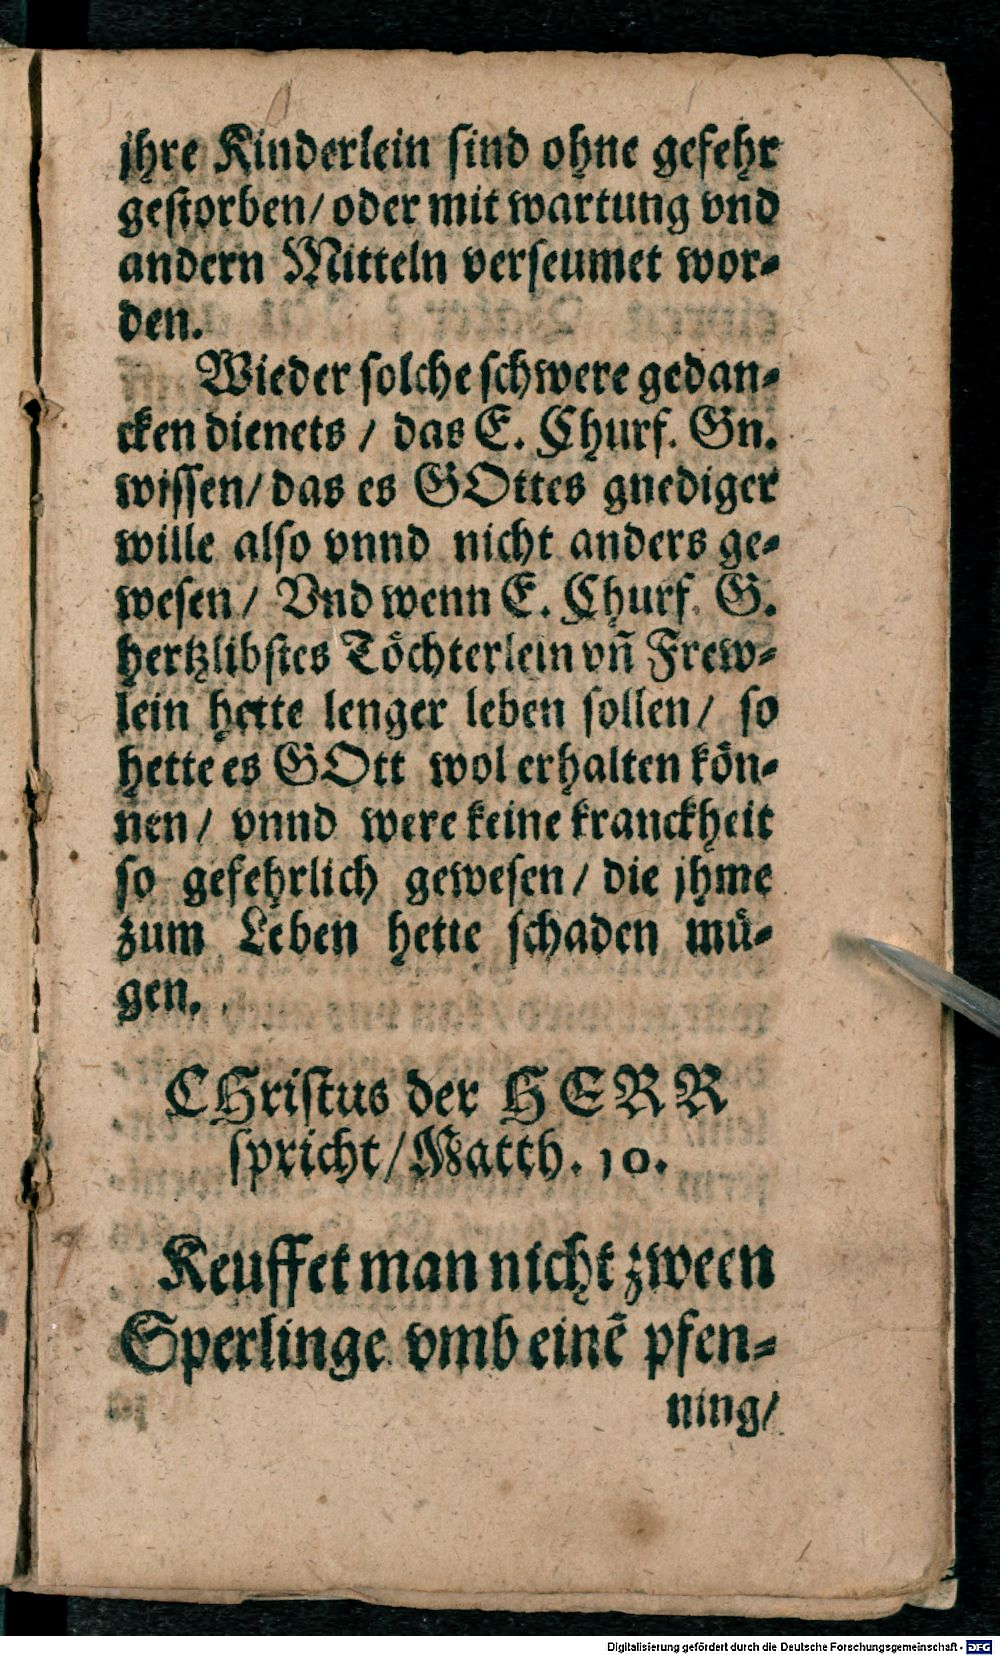 jhre Kinderlein sind ohne gefehr
gestorben/ oder mit wartung vnd
andern Mitteln verseumet wor-
den.
Wieder solche schwere gedan-
cken dienets / das E. Churf. Gn.
wissen/ das es GOttes gnediger
wille also vnnd nicht anders ge-
wesen/ Vnd wenn E. Churf. G.
hertzlibstes Töchterlein vñ Frew-
lein hette lenger leben sollen/ so
hette es GOtt wol erhalten kön-
nen/ vnnd were keine kranckheit
so gefehrlich gewesen/ die jhme
zum Leben hette schaden mü-
gen.
CHristus der HERR
spricht/ Matth. 10.
Keuffet man nicht zween
Sperlinge vmb einẽ pfen-
ning/
Digitalisierung gefördert durch die Deutsche Forschungsgemeinschaft - DFG